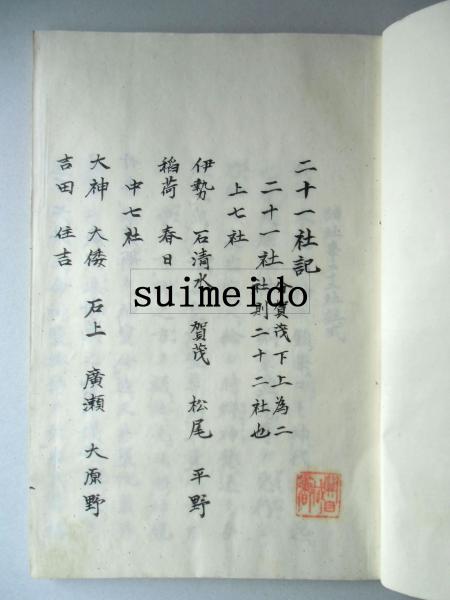 二十一社記
二十一社 賀茂下上為二
社則二十二社也
上七社
伊勢 石清水 賀茂 松尾 平野
稲荷 春日
中七社
大神 大倭 石上 廣瀬 大原野
吉田 住吉
suimeido